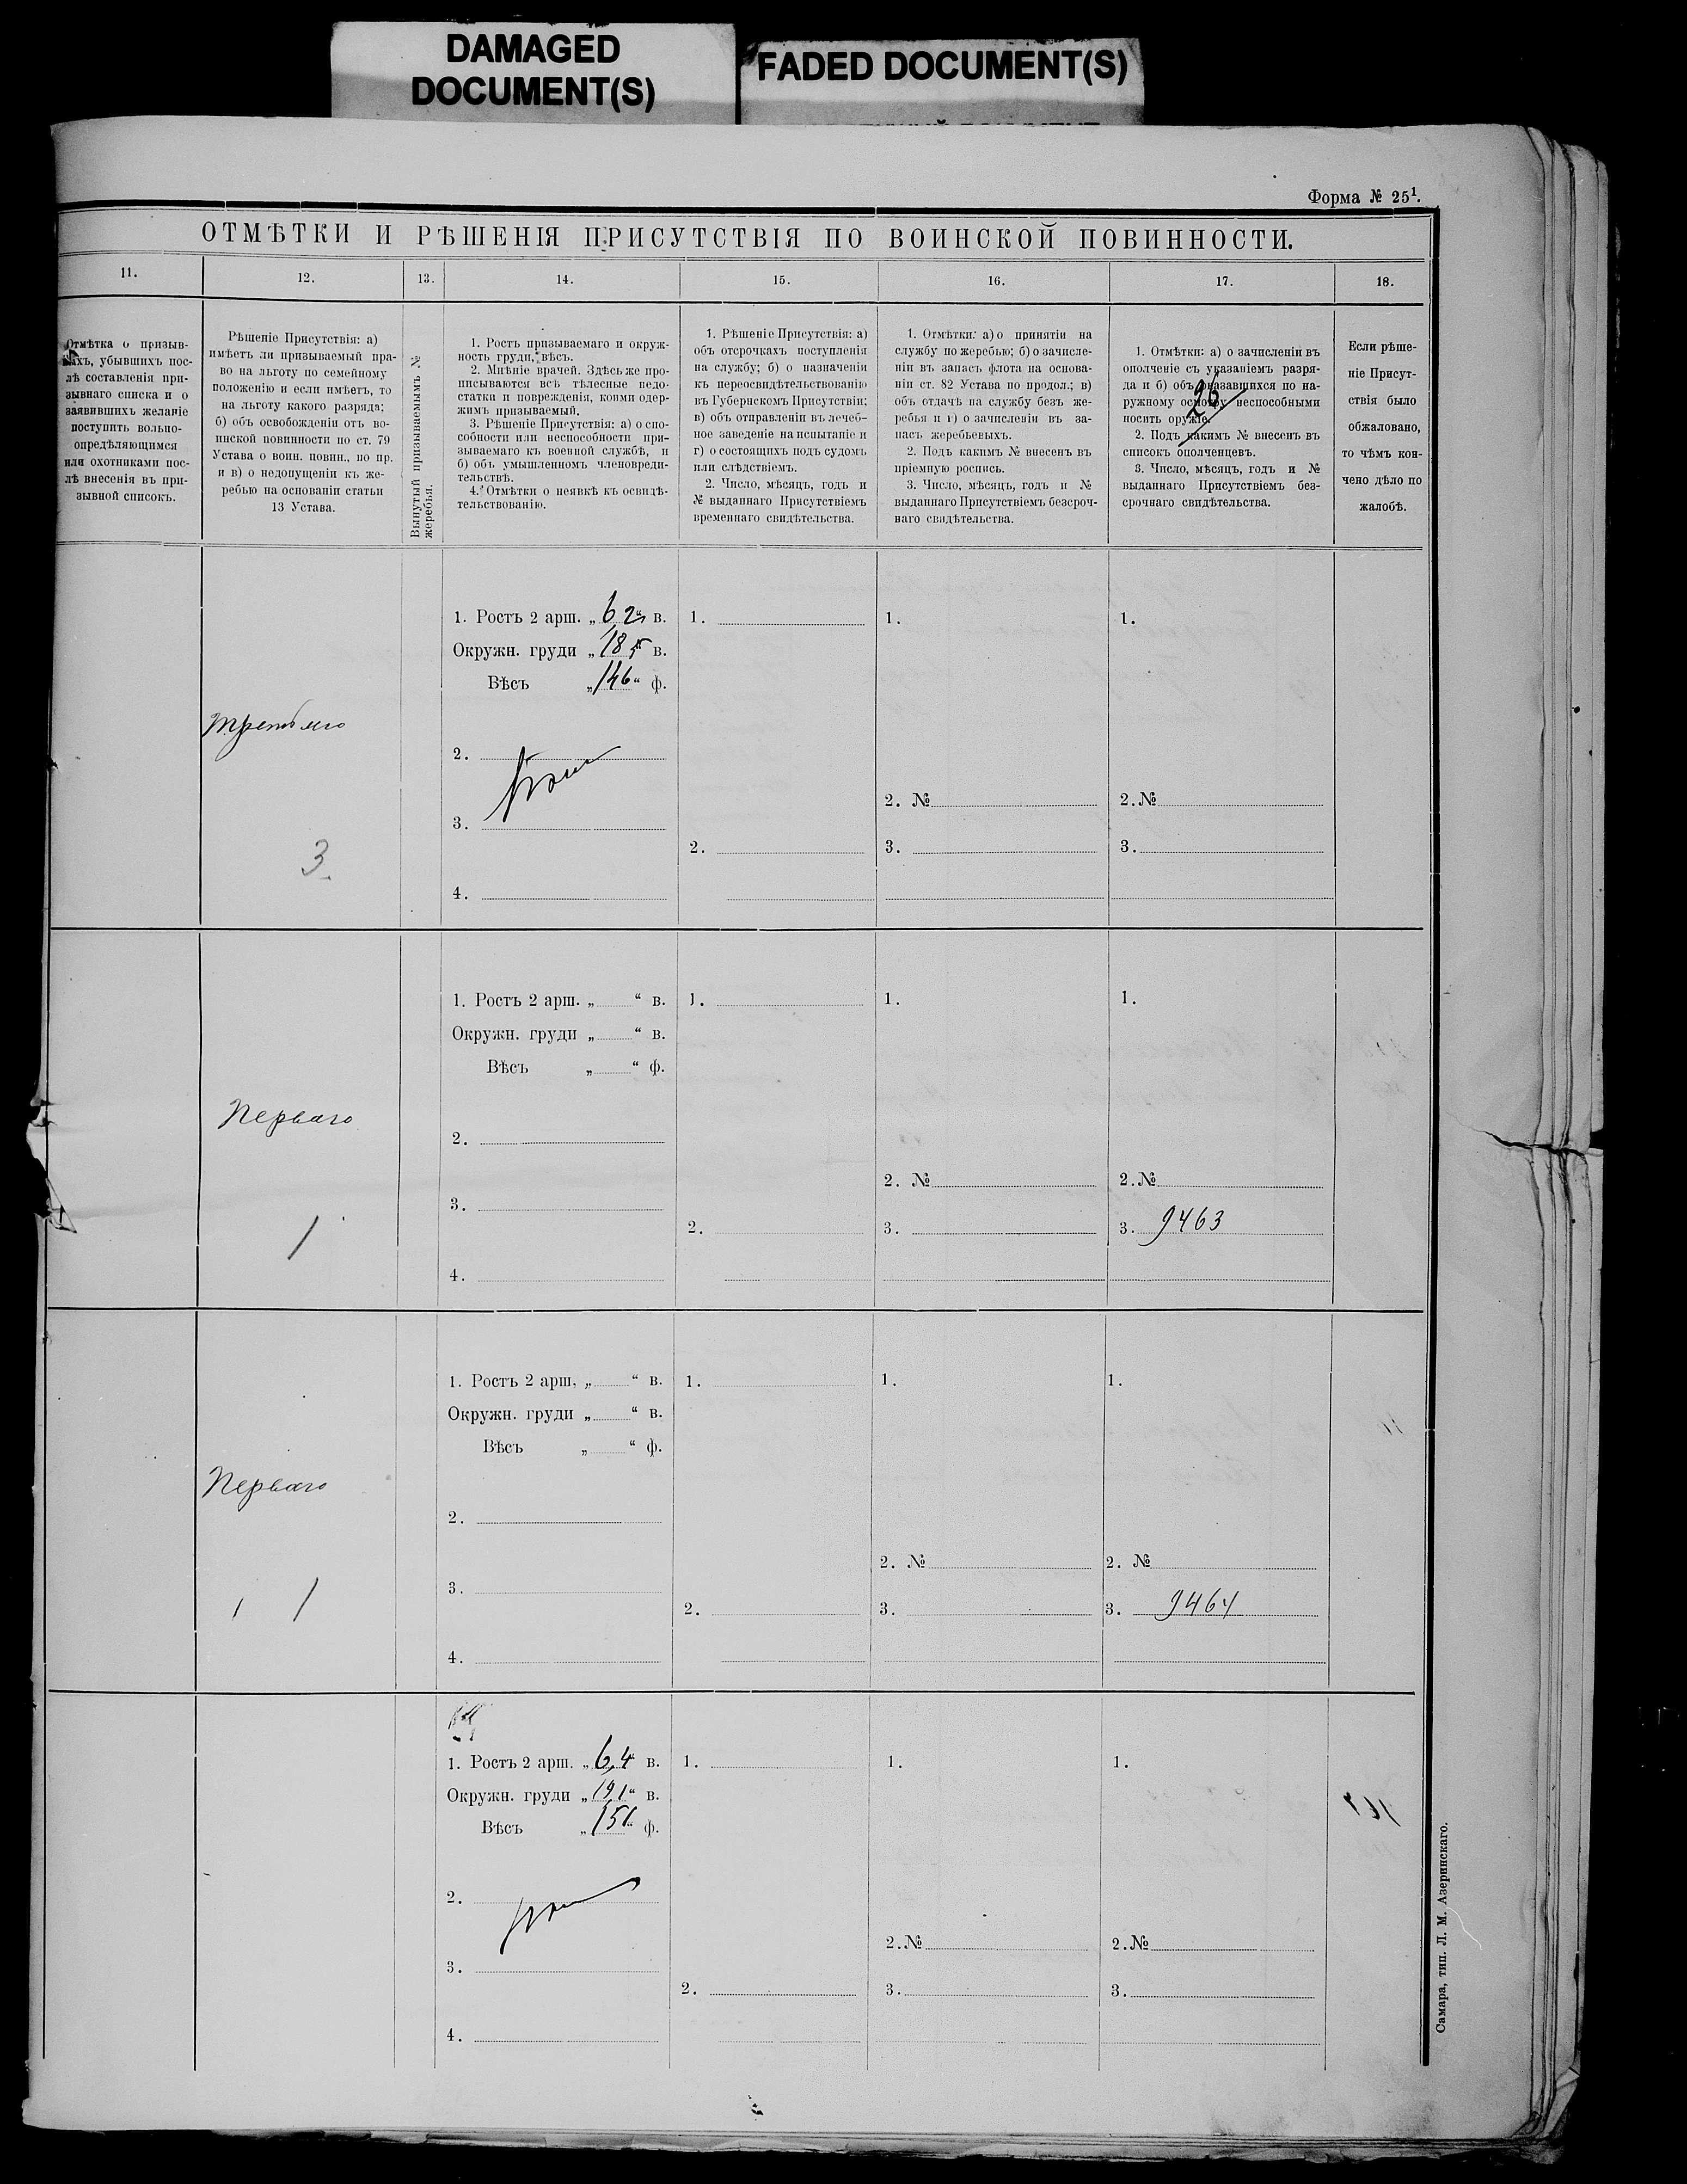 DAMAGED
DOCUMENT(S)
FADED DOCUMENT(S)
Форма № 25¹.
ОТМѢТКИ И РѢШЕНІЯ ПРИСУТСТВІЯ ПО ВОИНСКОЙ ПОВИННОСТИ.
11.
12.
13.
14.
15.
16.
17.
18.
Отмѣтка о призыв-
ныхъ, убывшихъ пос-
лѣ составленія при-
зывнаго списка и о
заявившихъ желаніе
поступить вольно-
опредѣляющимся
или охотниками пос-
лѣ внесенія въ при-
зывной списокъ.
Рѣшеніе Присутствія: а)
имѣетъ ли призываемый пра-
во на льготу по семейному
положенію и если имѣетъ, то
на льготу какого разряда;
б) объ освобожденіи отъ во-
инской повинности по ст. 79
Устава о воин. повин., по пр.
и в) о недопущеніи къ же-
ребью на основаніи статьи
13 Устава.
Вынутый призываемымъ №
жеребья.
1. Ростъ призываемаго и окруж-
ность груди, вѣсъ.
2. Мнѣніе врачей. Здѣсь же про-
писываются всѣ тѣлесные недо-
статки и поврежденія, коими одер-
жимъ призываемый.
3. Рѣшеніе Присутствія: а) о спо-
собности или неспособности при-
зываемаго къ военной службѣ, и
б) объ умышленномъ членовреди-
тельствѣ.
4. Отмѣтки о неявкѣ къ освидѣ-
тельствованію.
1. Рѣшеніе Присутствія: а)
объ отсрочкахъ поступленія
на службу; б) о назначеніи
къ переосвидѣтельствованію
въ Губернскомъ Присутствіи;
в) объ отправленіи въ лечеб-
ное заведеніе на испытаніе и
г) о состоящихъ подъ судомъ
или слѣдствіемъ.
2. Число, мѣсяцъ, годъ и
№ выданнаго Присутствіемъ
временнаго свидѣтельства.
1. Отмѣтки: а) о принятіи на
службу по жеребью; б) о зачисле-
ніи въ запасъ флота на основа-
ніи ст. 82 Устава по продол.; в)
объ отдачѣ на службу безъ же-
ребья и г) о зачисленіи въ за-
пасъ жеребьевыхъ.
2. Подъ какимъ № внесенъ въ
пріемную роспись.
3. Число, мѣсяцъ, годъ и №
выданнаго Присутствіемъ безсроч-
наго свидѣтельства.
1. Отмѣтки: а) о зачисленіи въ
ополченіе съ указаніемъ разря-
да и б) объ оказавшихся по на-
ружному осмотру неспособными
носить оружіе.
26
2. Подъ какимъ № внесенъ въ
списокъ ополченцевъ.
3. Число, мѣсяцъ, годъ и №
выданнаго Присутствіемъ без-
срочнаго свидѣтельства.
Если рѣше-
ніе Присут-
ствія было
обжаловано,
то чѣмъ кон-
чено дѣло по
жалобѣ.
третьяго
3
1. Ростъ 2 арш. „ 6 2 “ в.
Окружн. груди „ 18 5 “ в.
Вѣсъ „ 146 “ ф.
2.
3.
4.
1.
2.
1.
2. №
3.
1.
2. №
3.
Перваго
1
1. Ростъ 2 арш. „ “ в.
Окружн. груди „ “ в.
Вѣсъ „ “ ф.
2.
3.
4.
1.
2.
1.
2. №
3.
1.
2. №
3. 9463
Перваго
1 1
1. Ростъ 2 арш. „ “ в.
Окружн. груди „ “ в.
Вѣсъ „ “ ф.
2.
3.
4.
1.
2.
1.
2. №
3.
1.
2. №
3. 9464
1. Ростъ 2 арш. „ 6,4 “ в.
Окружн. груди „ 191 “ в.
Вѣсъ „ 151 “ ф.
2.
3.
4.
1.
2.
1.
2. №
3.
1.
2. №
3.
Самара, тип. Л. М. Азеринскаго.